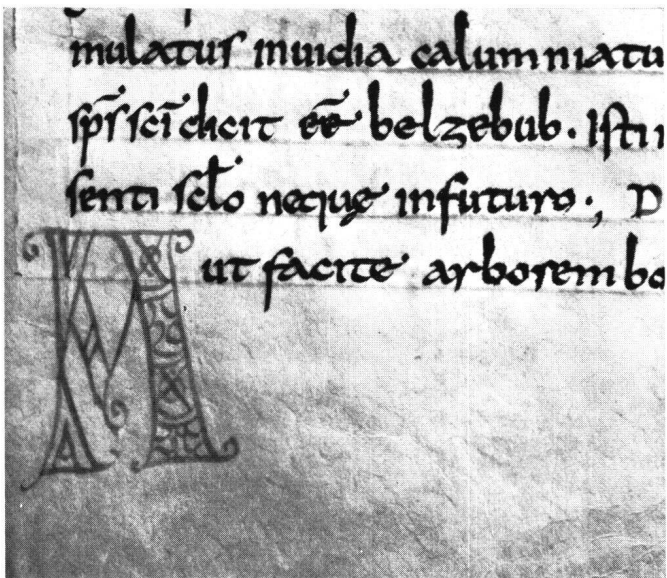 mulatus inuidia calumniatu
sp̄s sc̄i dicit eē belzebub. Isti
senti scło nequę in futuro ., D
Aut facite arborem bo